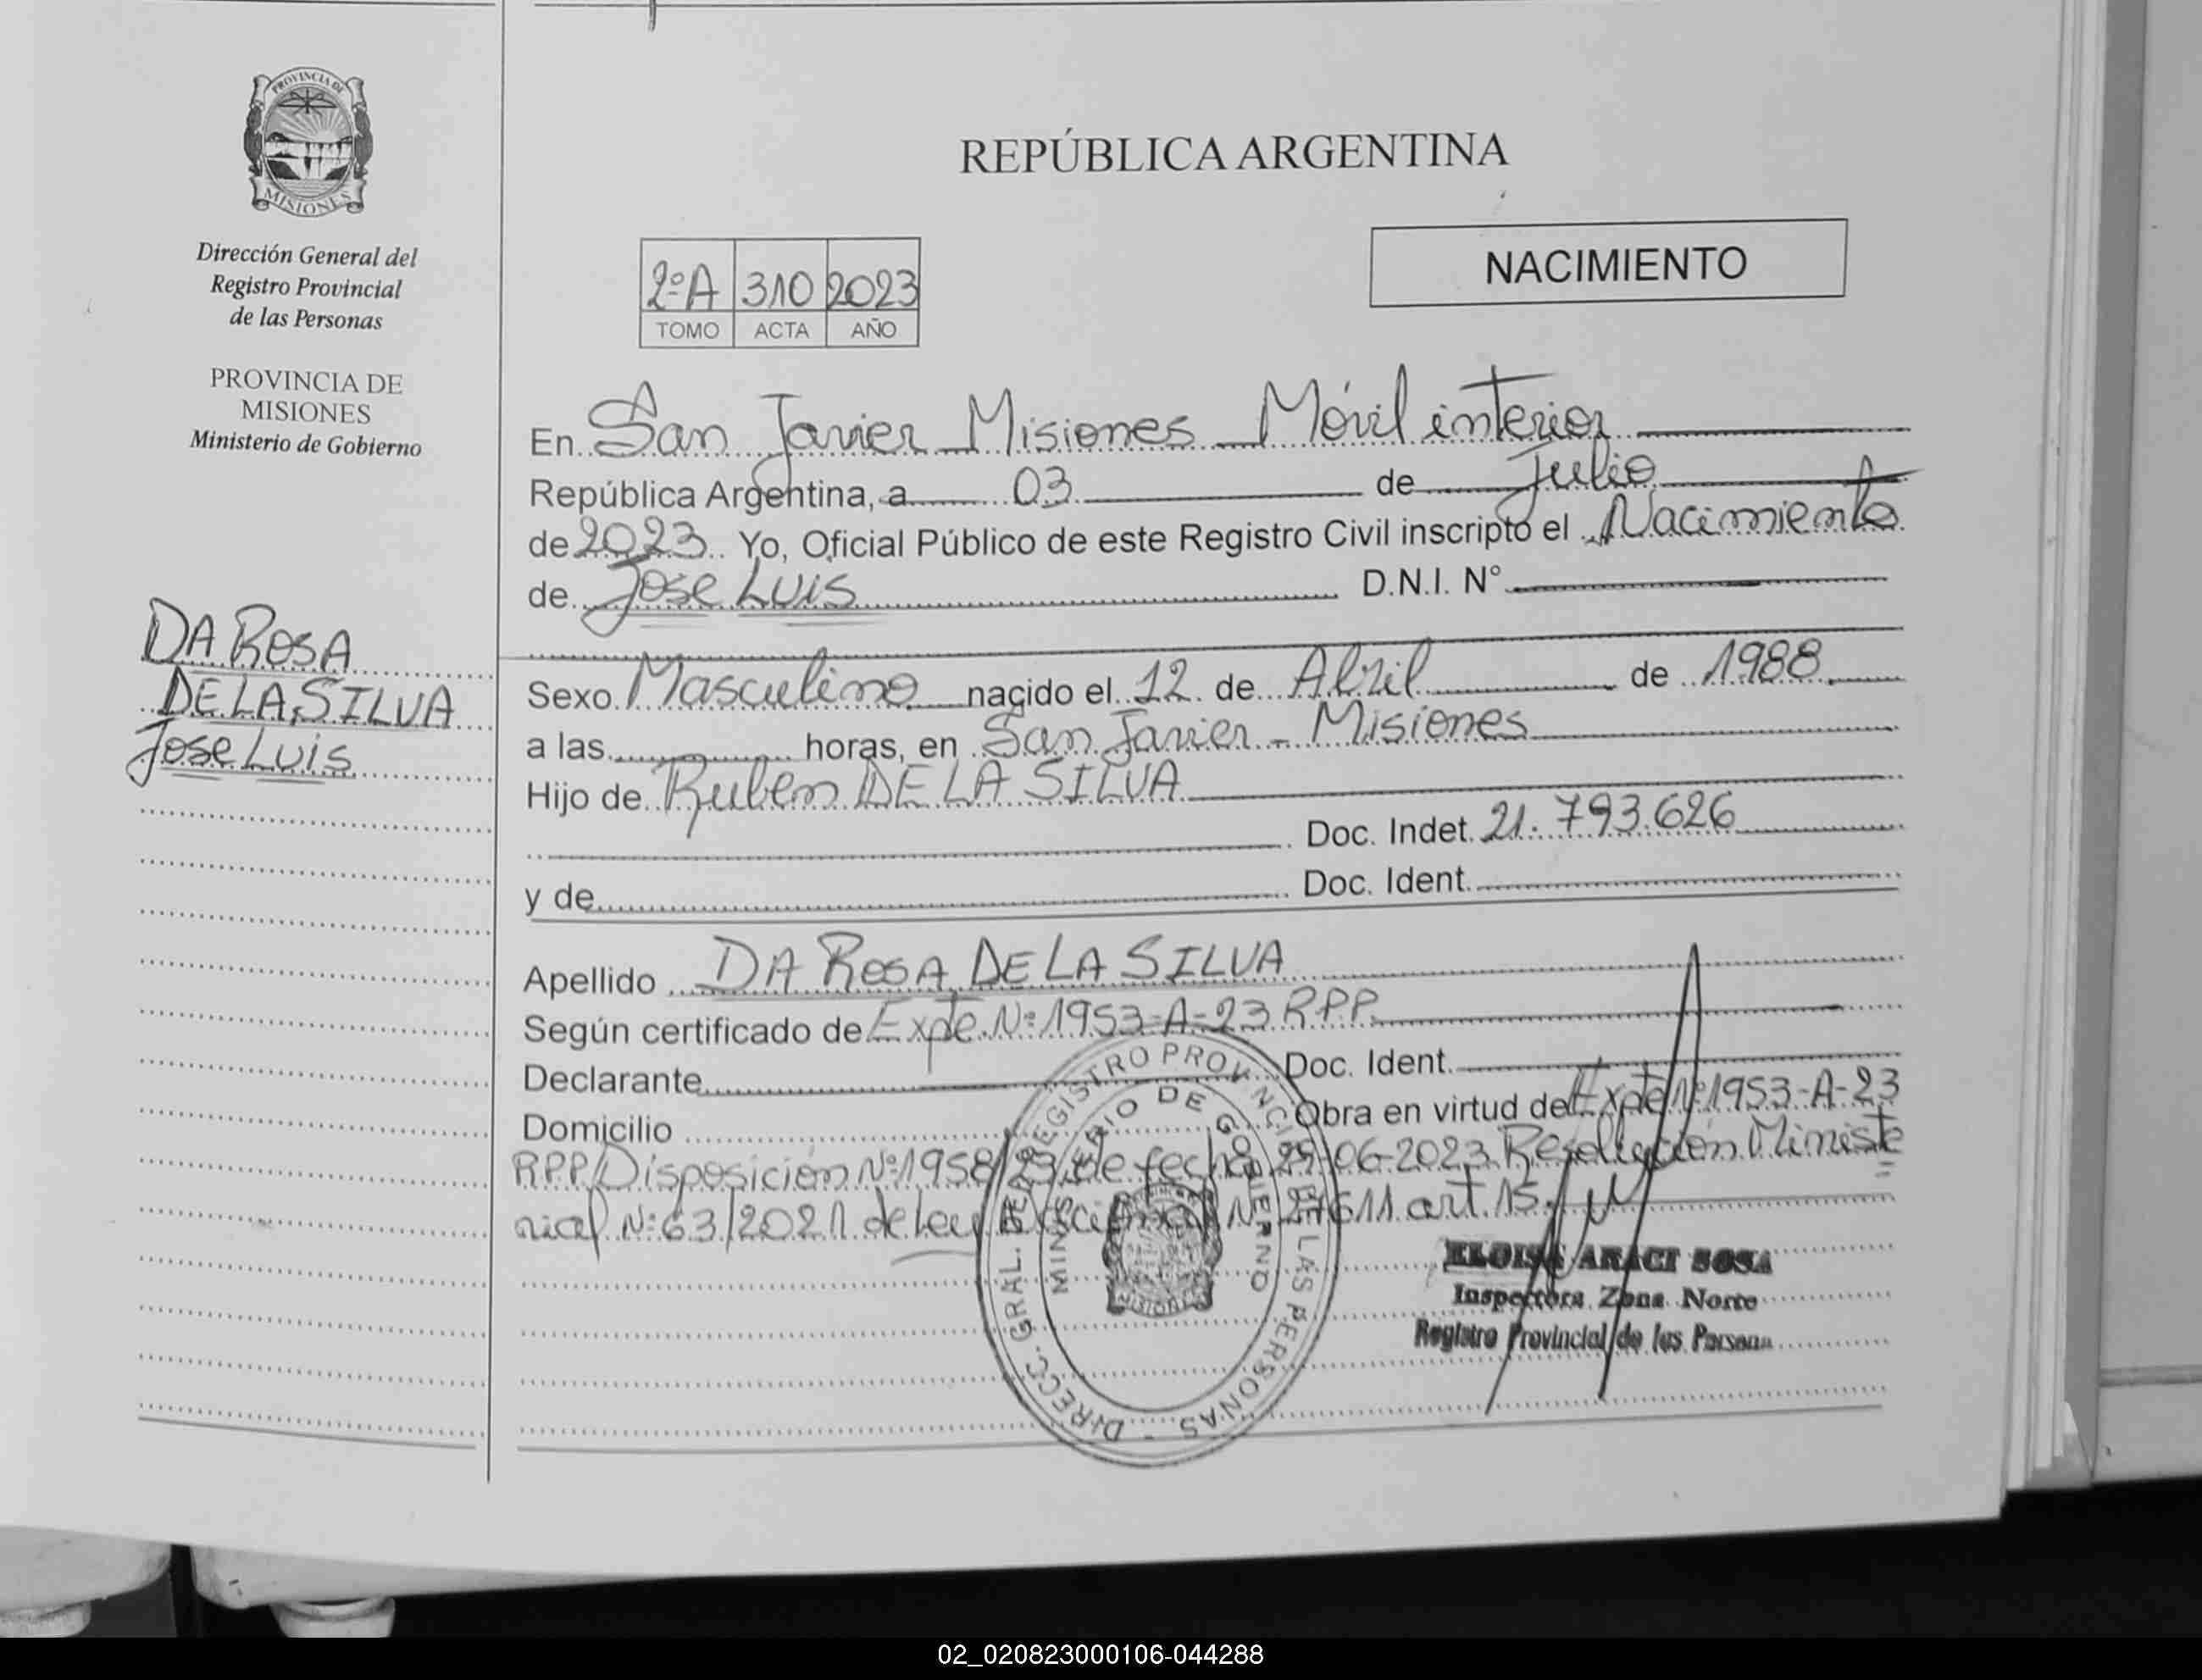 PROVINCIA DE
MISIONES
Dirección General del
Registro Provincial
de las Personas
PROVINCIA DE
MISIONES
Ministerio de Gobierno
DA ROSA
DE LA SILVA
Jose Luis
REPÚBLICA ARGENTINA
NACIMIENTO
2ºA 310 2023
TOMO ACTA AÑO
En San Javier Misiones Móvil interior
República Argentina, a 03 de Julio
de 2023 Yo, Oficial Público de este Registro Civil inscripto el Nacimiento
de Jose Luis D.N.I. N°
Sexo Masculino nacido el 12 de Abril de 1988
a las horas, en San Javier - Misiones
Hijo de Ruben DE LA SILVA
Doc. Indet. 21.793.626
y de Doc. Ident.
Apellido DA ROSA DE LA SILVA
Según certificado de Expte. Nº 1953-A-23 RPP.
Declarante Doc. Ident.
Domicilio Obra en virtud de Expte Nº 1953-A-23
RPP/Disposición Nº 1958/23 de fecha 29-06-2023 Resolución Ministe
rial Nº 63/2021 de Ley Nº 27611 art. 15.
DIRECC. GRAL. REGISTRO PROVINCIAL DE LAS PERSONAS
MINISTERIO DE GOBIERNO
MISIONES
ELOISA ARACI SOSA
Inspectora Zona Norte
Registro Provincial de las Personas
02_020823000106-044288